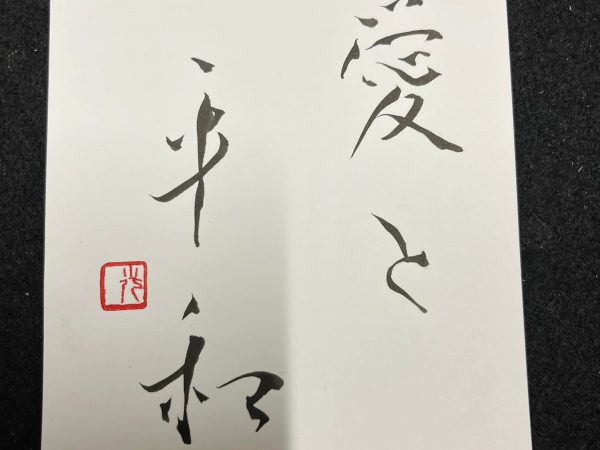 愛と
平和
光